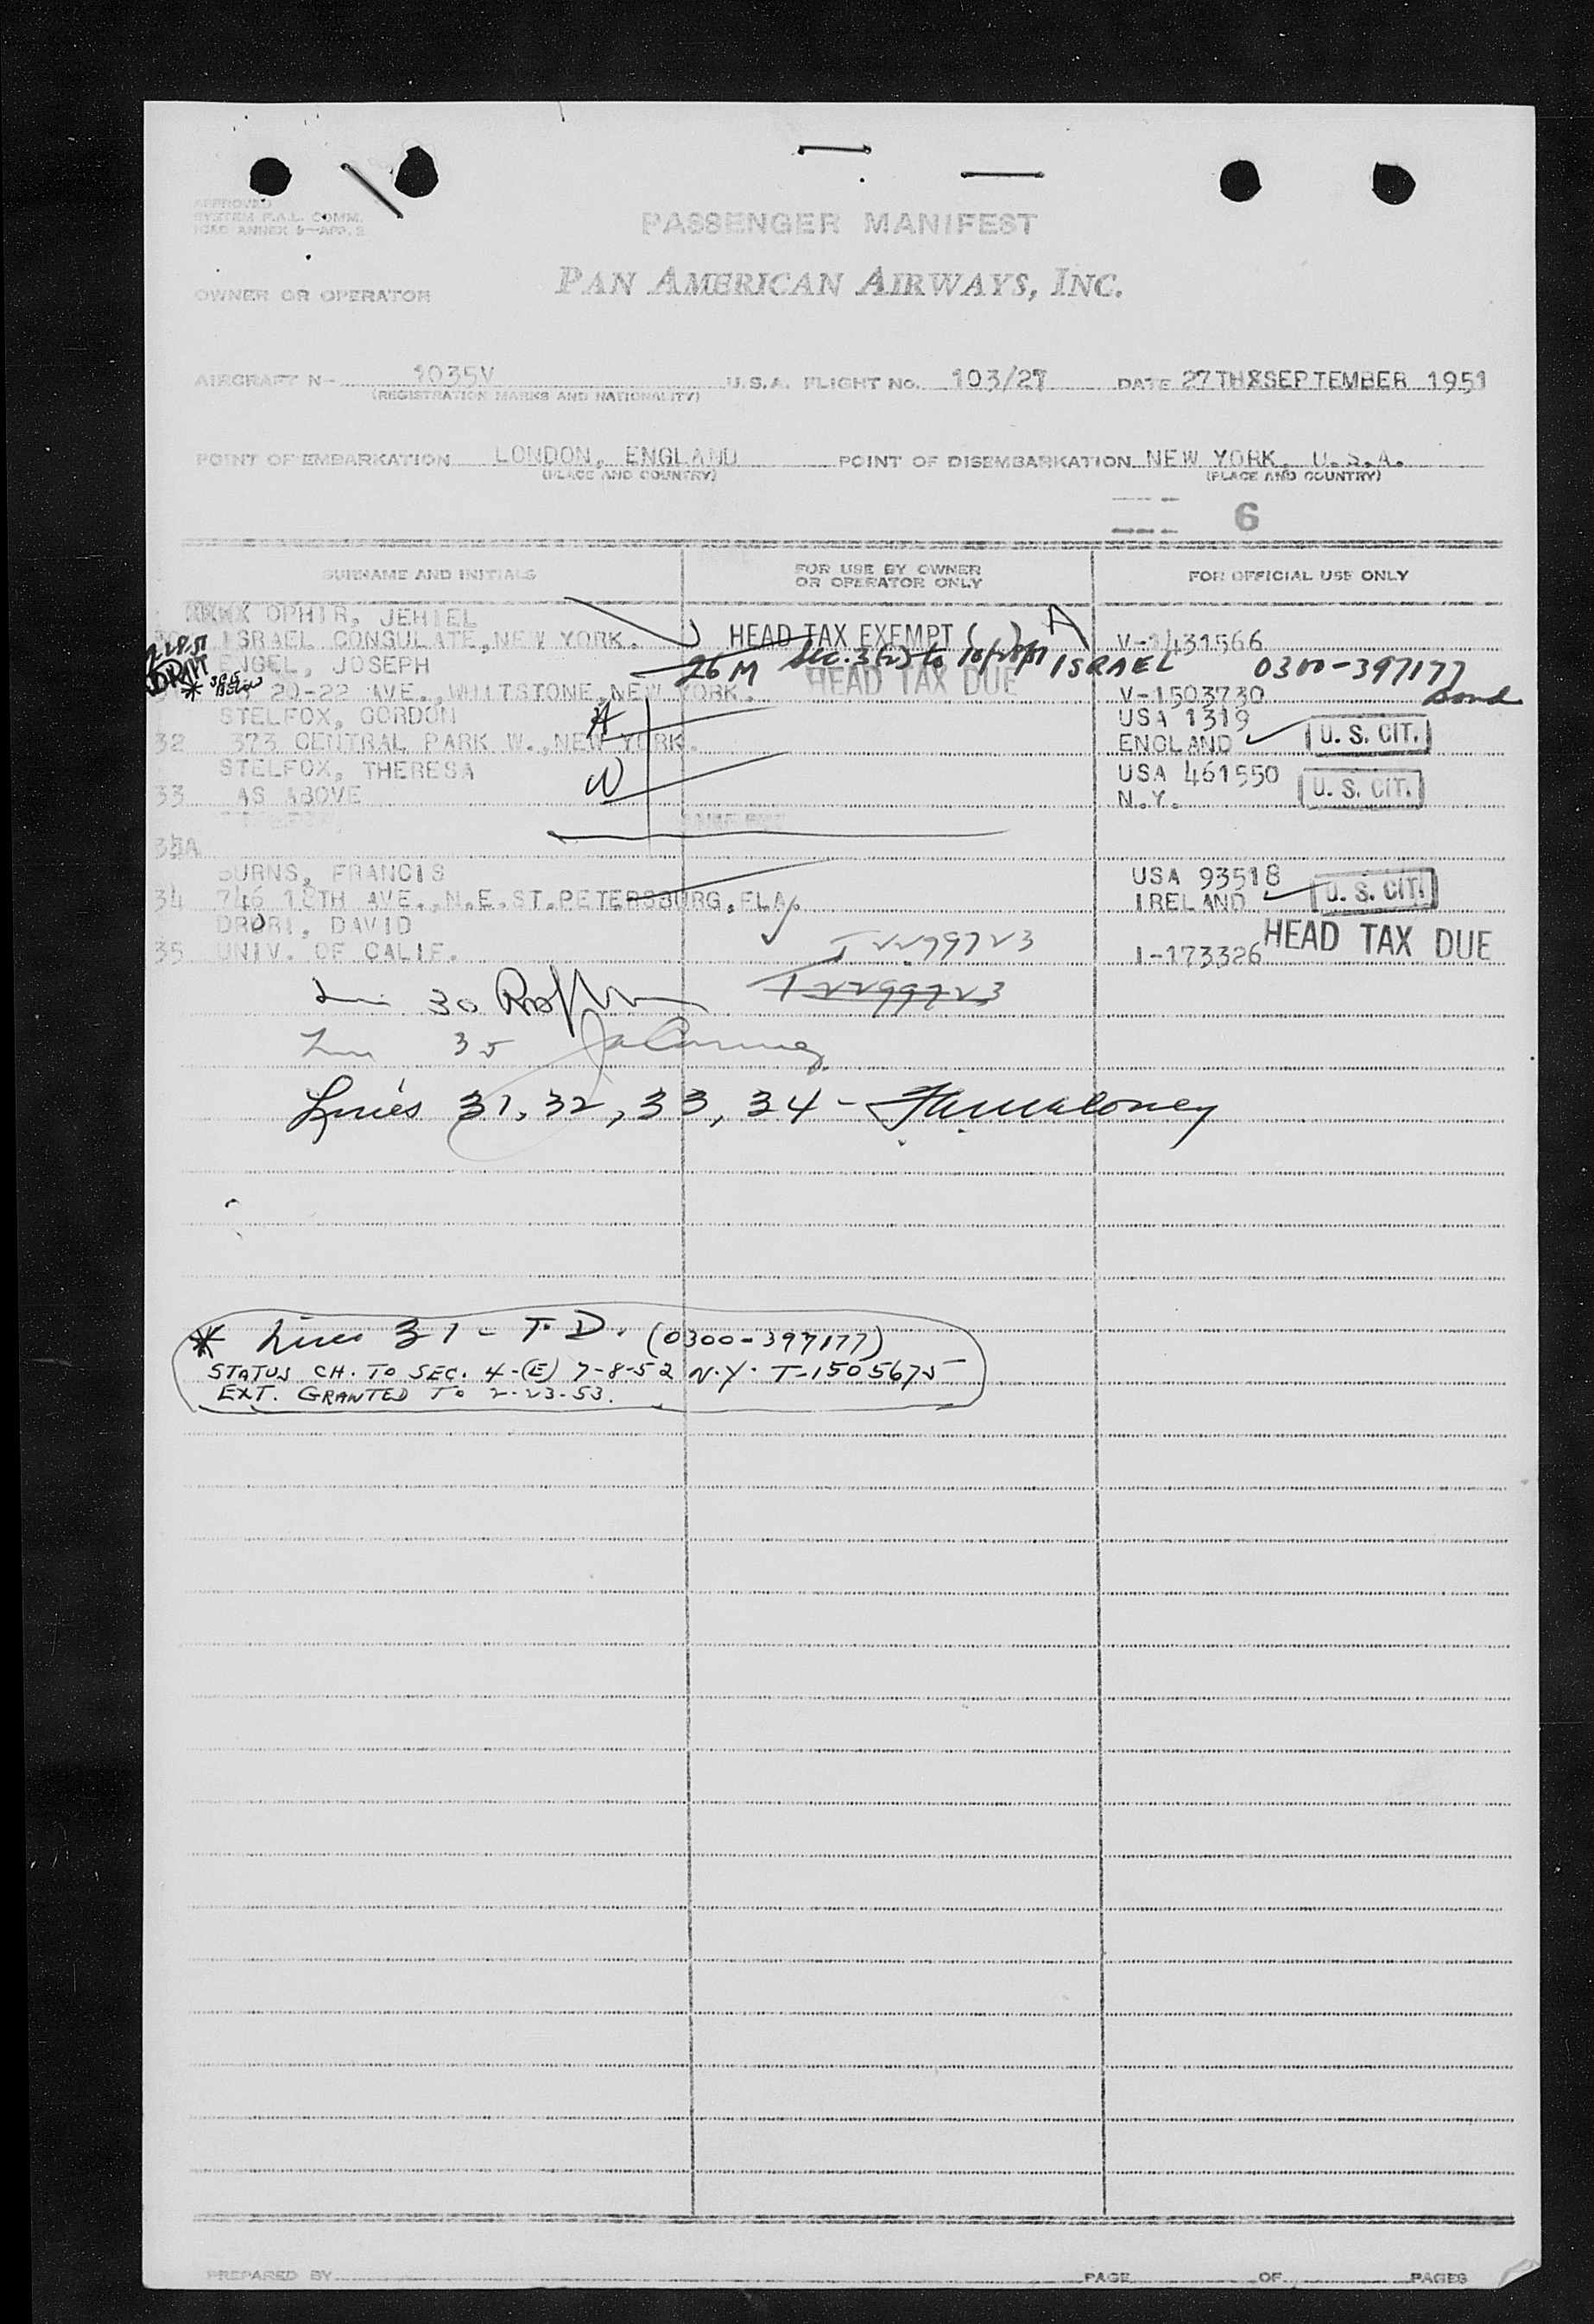 APPROVED
SYSTEM F.A.L. COMM.
ICAO ANNEX 9—APP. 3
PASSENGER MANIFEST
OWNER OR OPERATOR PAN AMERICAN AIRWAYS, INC.
AIRCRAFT N- 1035V U.S.A. FLIGHT NO. 103/27 DATE 27TH SEPTEMBER 1951
(REGISTRATION MARKS AND NATIONALITY)
POINT OF EMBARKATION LONDON, ENGLAND POINT OF DISEMBARKATION NEW YORK, U.S.A.
(PLACE AND COUNTRY) (PLACE AND COUNTRY)
6
SURNAME AND INITIALS FOR USE BY OWNER OR OPERATOR ONLY FOR OFFICIAL USE ONLY
OPHIR, JEHIEL A
ISRAEL CONSULATE, NEW YORK. HEAD TAX EXEMPT ( ) V-1431566
ENGEL, JOSEPH 26 M Sec. 3(2) to ISRAEL 0300-397177
* SEE BELOW 20-22 AVE., WHITSTONE, NEW YORK. HEAD TAX DUE V-1503730 Bond
STELFOX, GORDON A USA 1319
32 373 CENTRAL PARK W., NEW YORK. ENGLAND U. S. CIT.
STELFOX, THERESA W USA 461550
33 AS ABOVE N.Y. U. S. CIT.
33A
BURNS, FRANCIS USA 93518
34 746 18TH AVE., N.E. ST. PETERSBURG, FLA. IRELAND U. S. CIT.
DRORI, DAVID
35 UNIV. OF CALIF. T 2279723 I-173326 HEAD TAX DUE
30 T 2299723
35
Lines 31, 32, 33, 34 - Maloney
* Line 31 - T. D. (0300-397177)
STATUS CH. TO SEC. 4-(E) 7-8-52 N.Y. T-1505675
EXT. GRANTED TO 2-23-53.
PREPARED BY PAGE OF PAGES